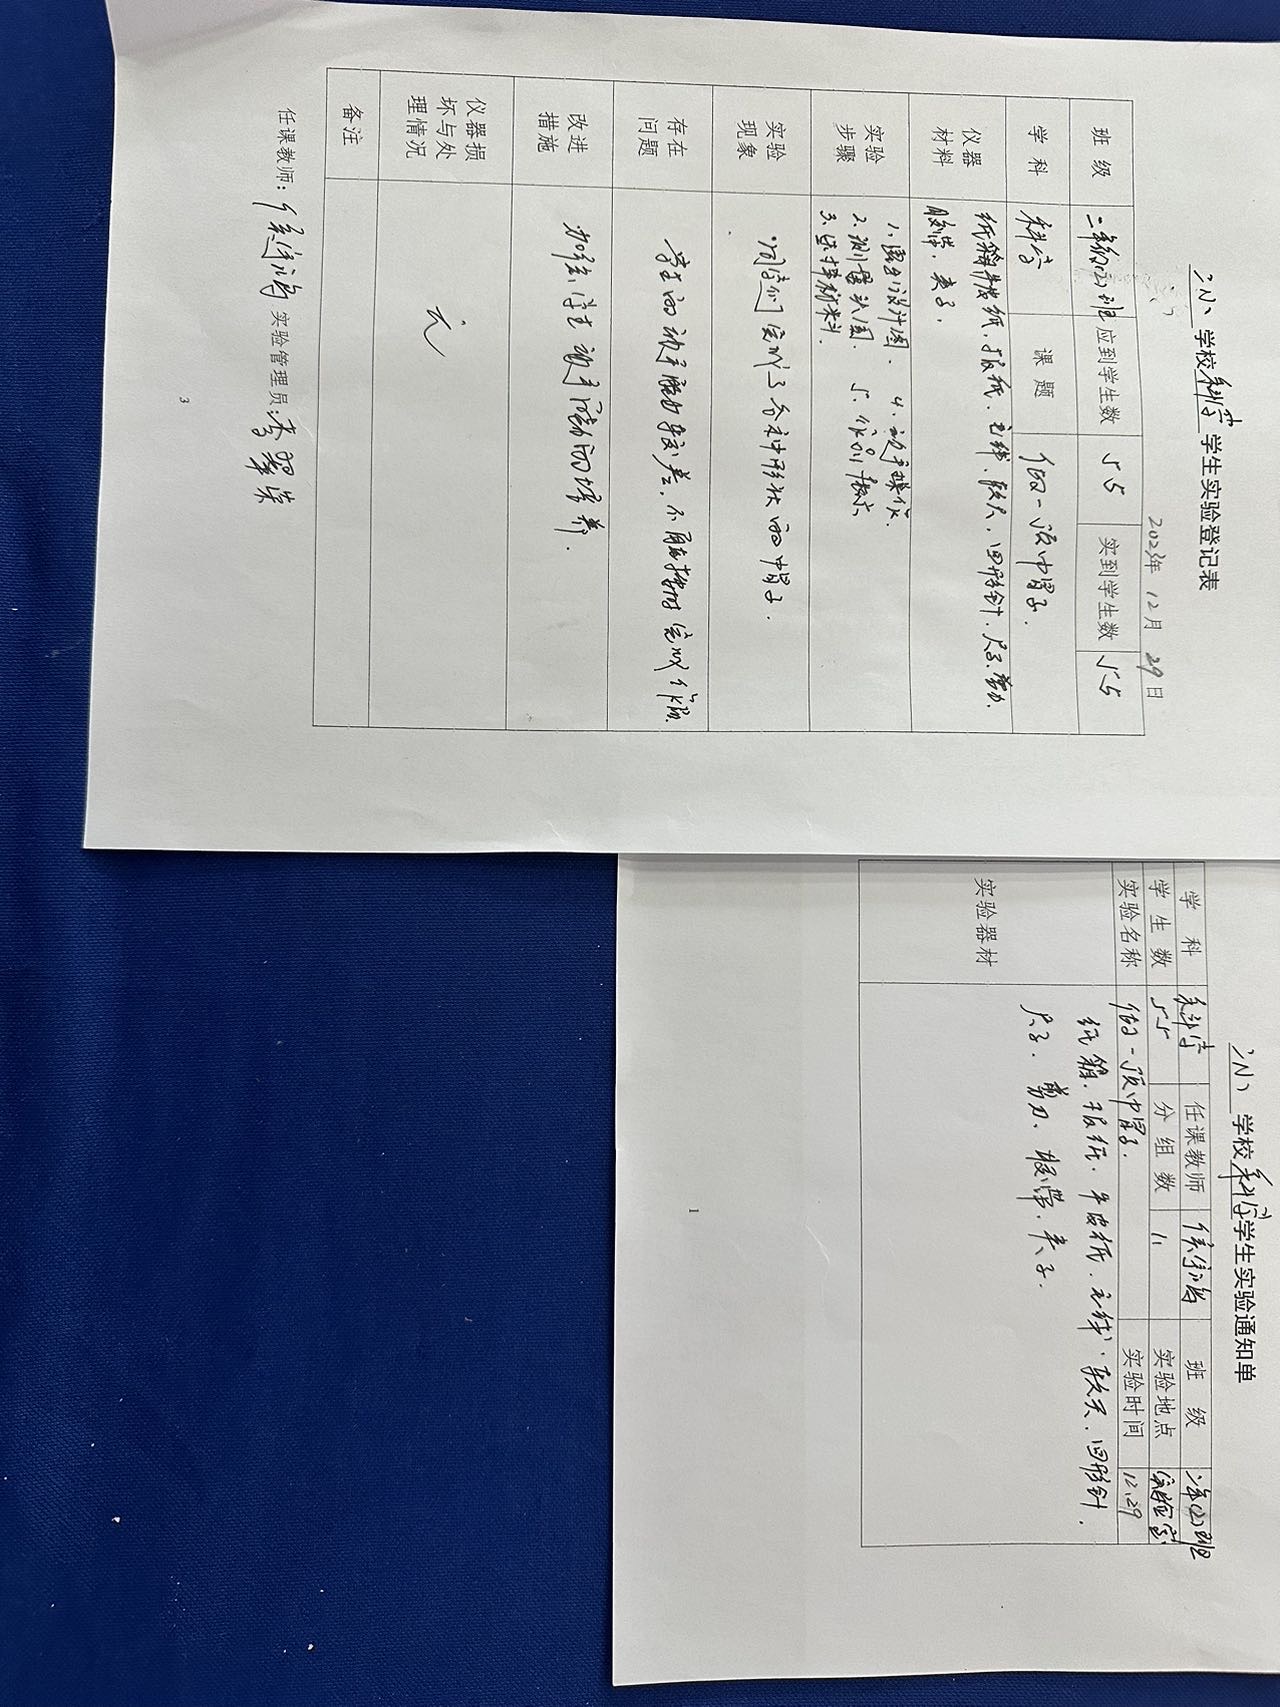 学校科学学生实验登记表
2023年 12月 29日
班 级 二年级(2)班 应到学生数 55 实到学生数 55
学 科 科学 课 题 做一顶帽子.
仪器材料 纸箱、牛皮纸、报纸、毛线、软尺、回形针、尺子、剪刀、
胶带、夹子.
实验步骤 1、画出设计图. 4、动手操作.
2、测量头围. 5、作品
3、选择材料.
实验现象 同学们完成了各种形状的帽子.
存在问题 学生的动手能力较差,不能按时完成作品.
改进措施 加强学生动手 的培养.
仪器损坏与处理情况 无
备注
任课教师: 实验管理员:
3
学校科学学生实验通知单
学 科 科学 任课教师 班 级 二年(2)班
学 生 数 55 分 组 数 11 实验地点 实验室
实验名称 做一顶帽子. 实验时间 12.29
实验器材 纸箱、报纸、牛皮纸、毛线、软尺、回形针.
尺子、剪刀、胶带、夹子.
1